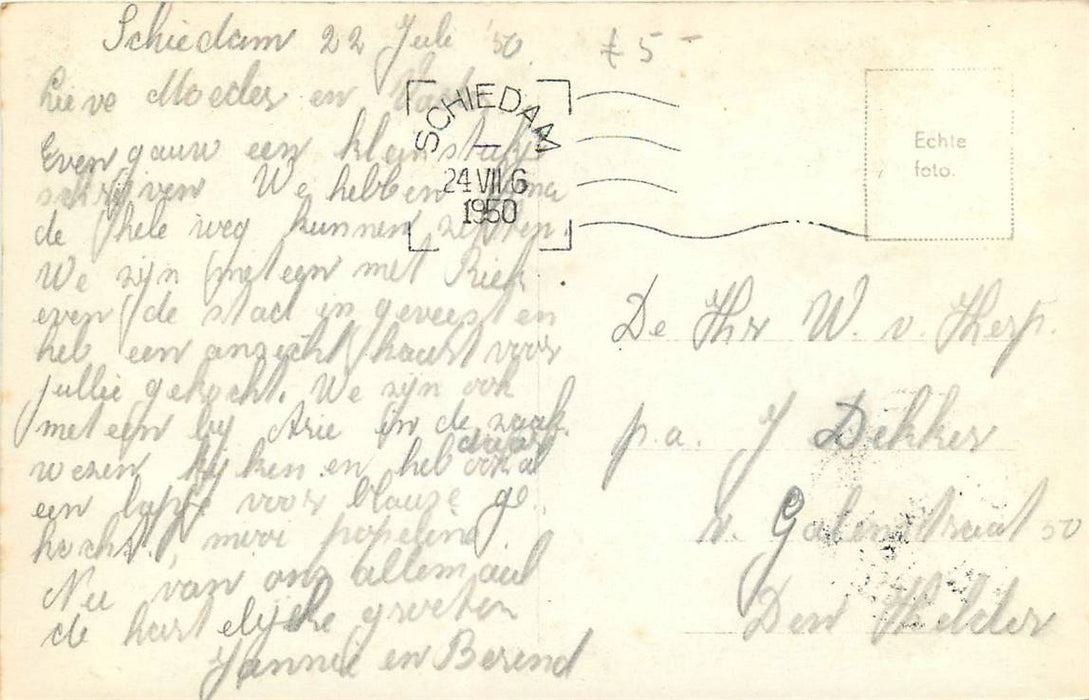 Schiedam 22 Juli '50.
£ 5 -
Lieve Moeder en
Even gauw een klein stukje
schrijven We hebben
de hele weg kunnen zitten.
We zijn meteen met Riek
even de stad in geweest en
heb een anzecht kaart voor
jullie gekocht. We zijn ook
met een bij Arie in de zaak
wezen kijken en heb daar ook al
een lapje voor blouse ge
kocht, mooi popeline
Nu van ons allemaal
de hartelijke groeten
Jannie en Berend
SCHIEDAM
24 VII 6
1950
Echte
foto.
De Hr W. v. Herp.
p.a. J Dekker
v. Galenstraat 50
Den Helder